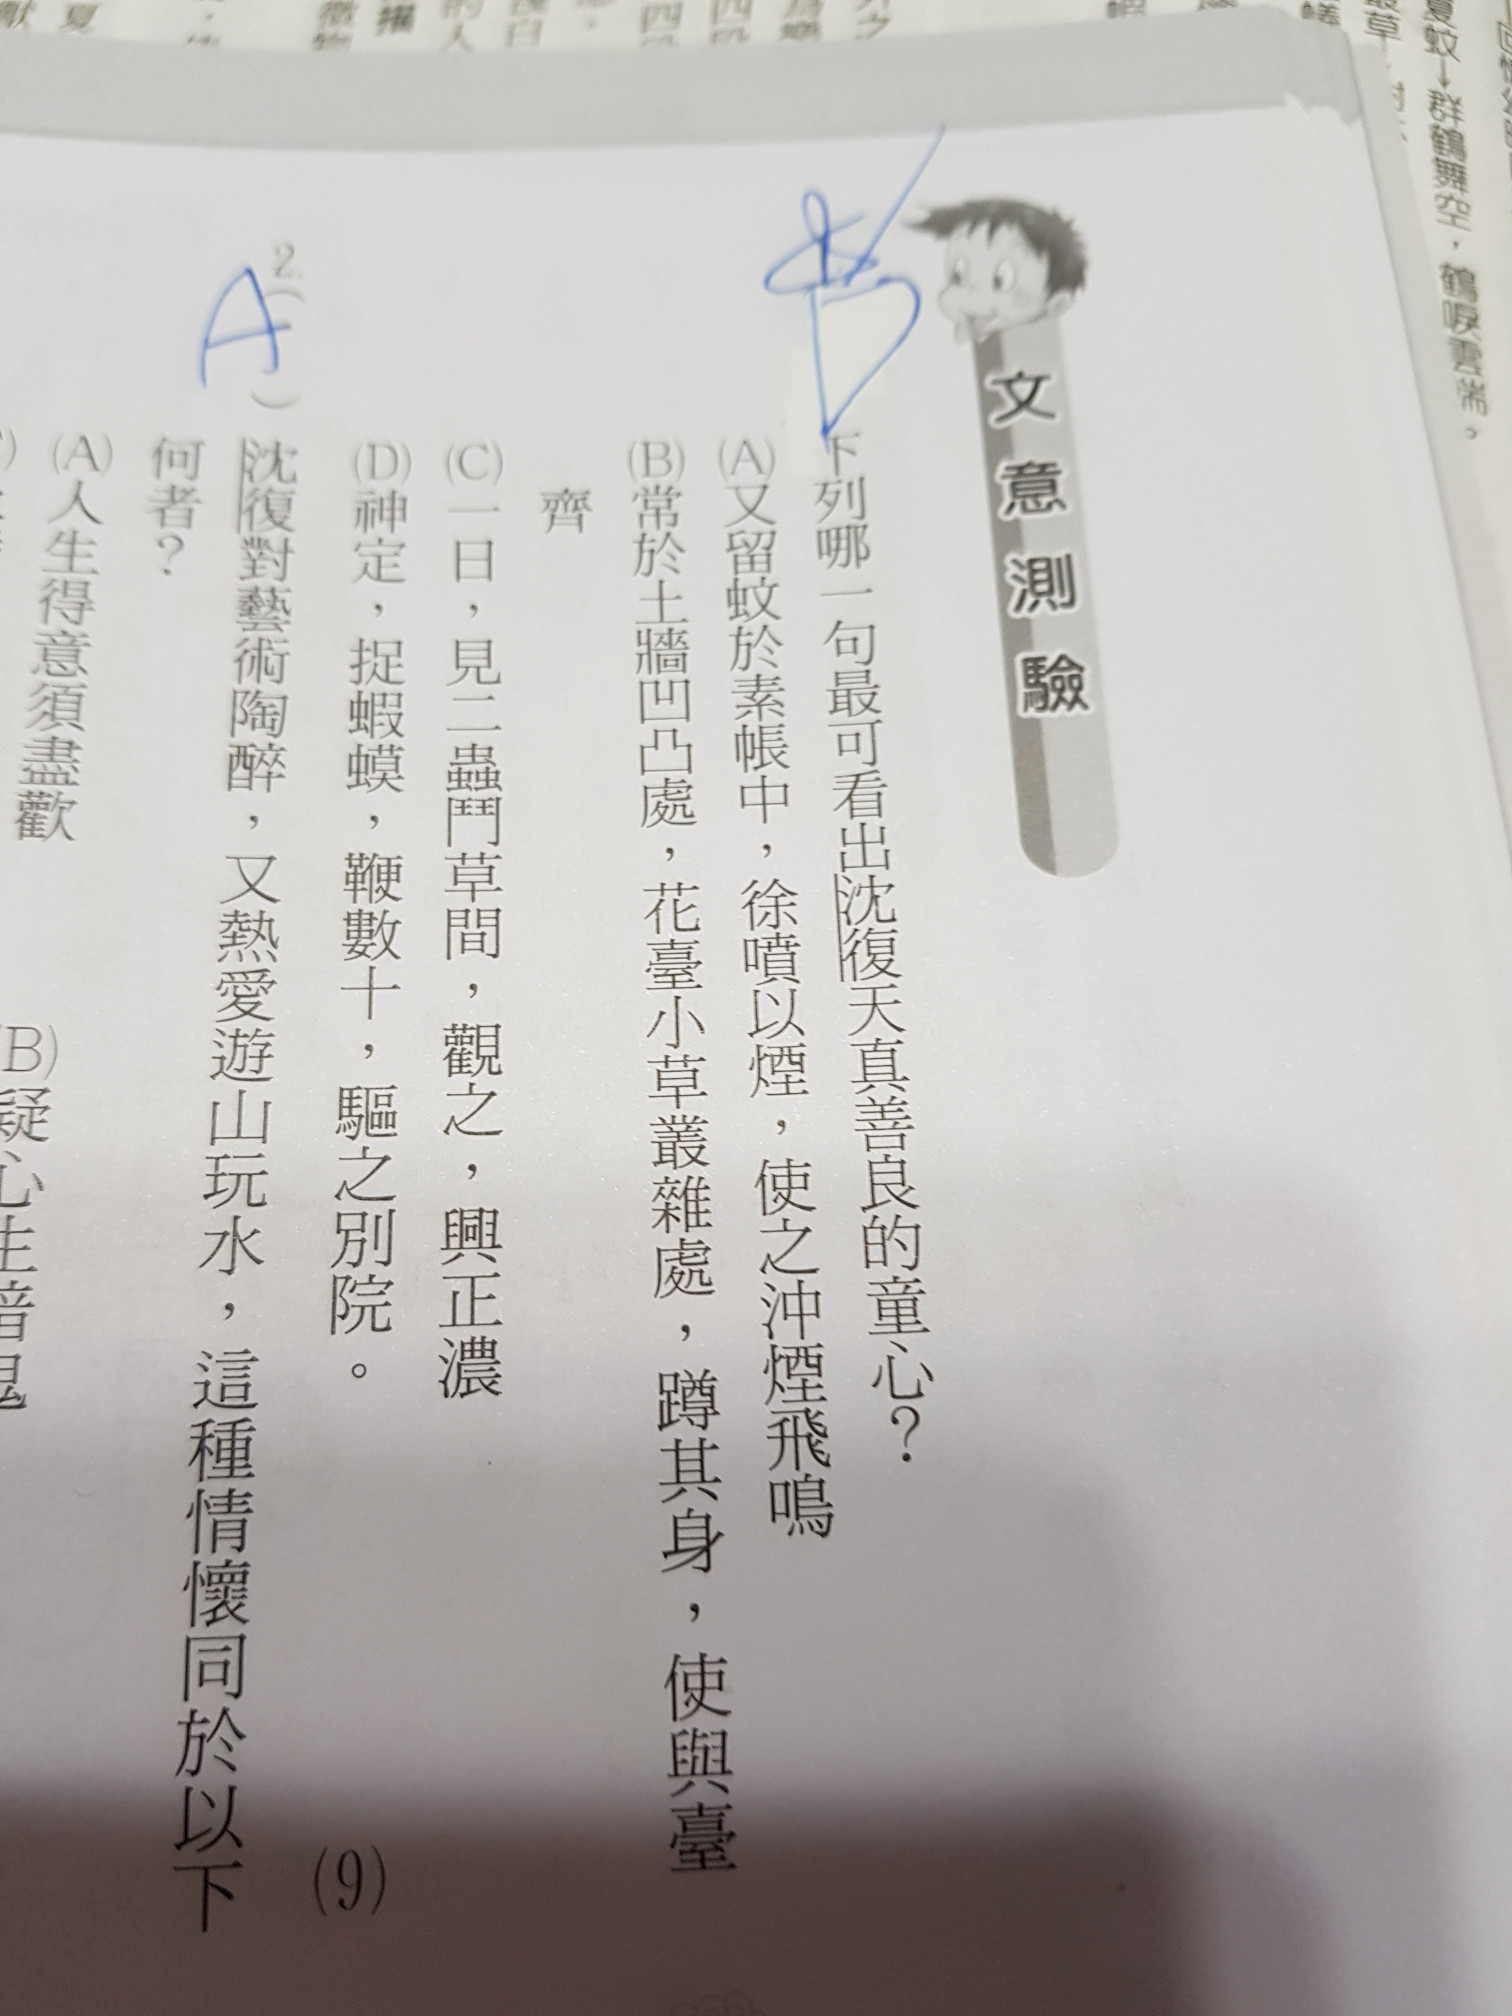 夏蚊→群鶴舞空，鶴唳雲端。
文意測驗
下列哪一句最可看出沈復天真善良的童心？
(A)又留蚊於素帳中，徐噴以煙，使之沖煙飛鳴
(B)常於土牆凹凸處，花臺小草叢雜處，蹲其身，使與臺
齊
(C)一日，見二蟲鬥草間，觀之，興正濃
(D)神定，捉蝦蟆，鞭數十，驅之別院。
(9)
A
2.( )沈復對藝術陶醉，又熱愛遊山玩水，這種情懷同於以下
何者？
(A)人生得意須盡歡
(B)疑心生暗鬼